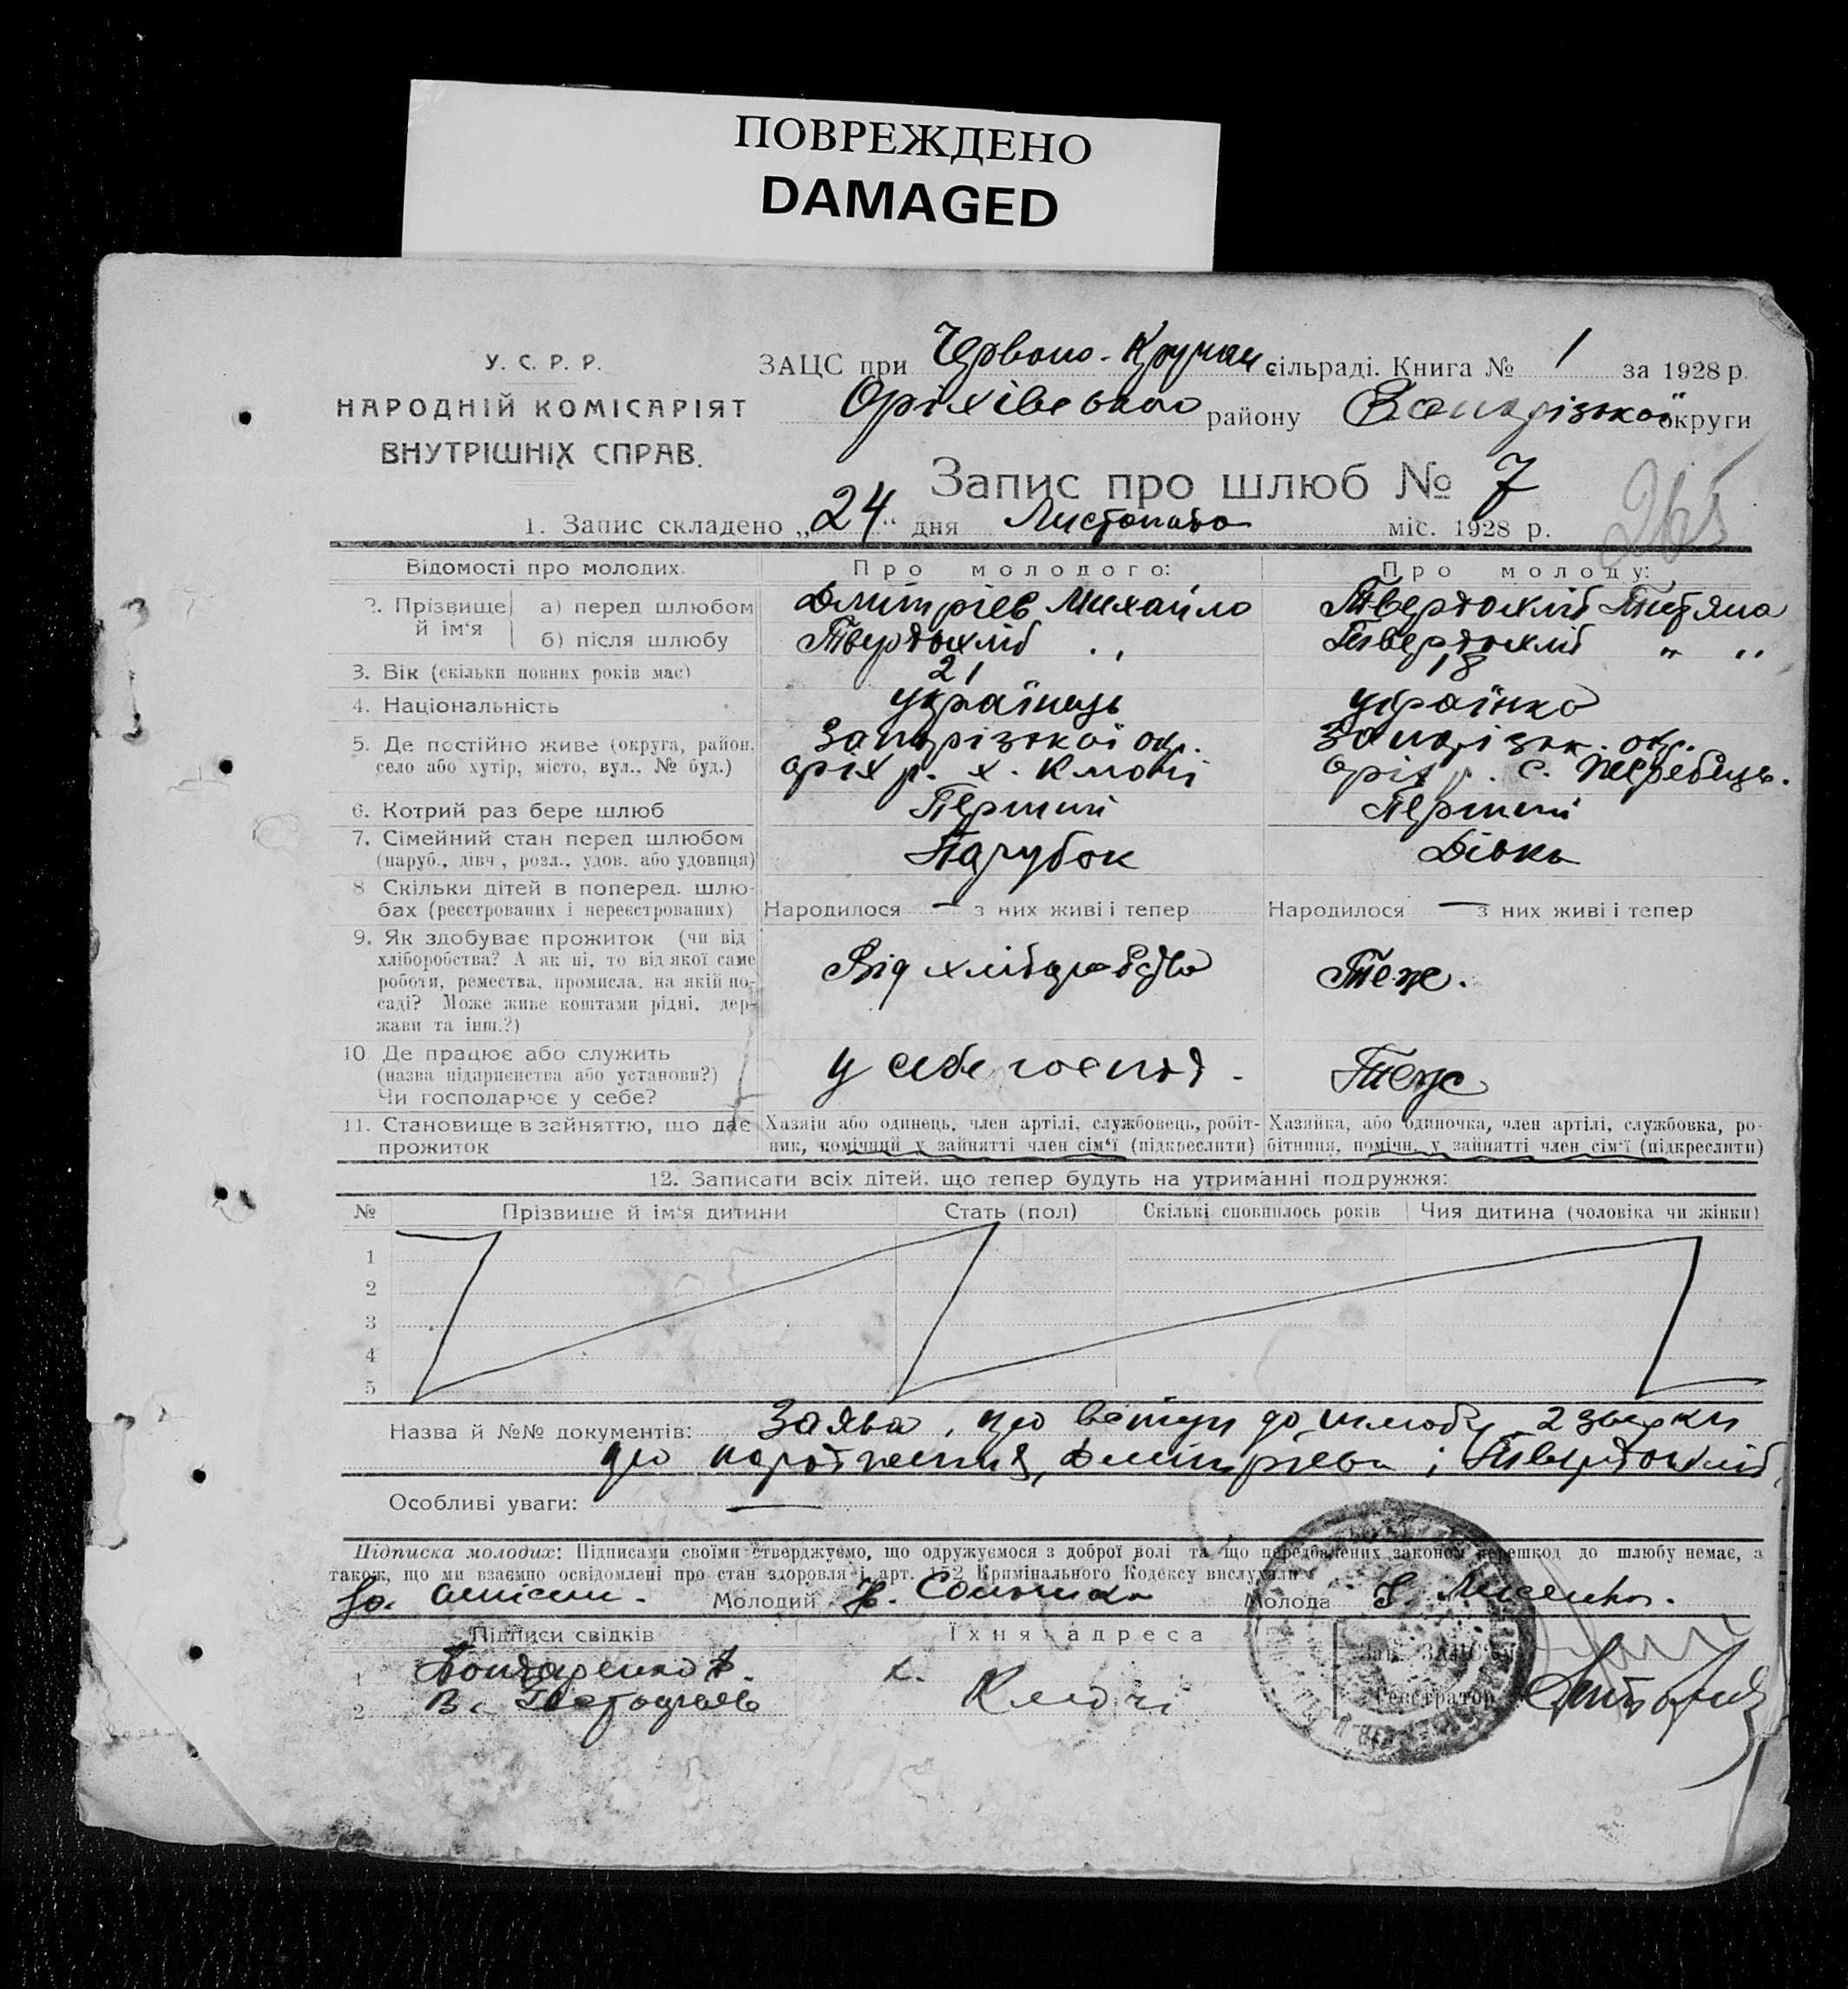 ПОВРЕЖДЕНО
DAMAGED
У. С. Р. Р.
НАРОДНІЙ КОМІСАРІЯТ
ВНУТРІШНІХ СПРАВ.
ЗАЦС при Червоно-Кручан сільраді. Книга № 1 за 1928 р.
Оріхівського району Запорізької округи
Запис про шлюб № 7
265
1. Запис складено „24“ дня Листопада міс. 1928 р.
Відомості про молодих. Про молодого: Про молоду:
2. Прізвище й ім‘я а) перед шлюбом Дмитрієв Михайло Твердохліб Тетяна
б) після шлюбу Твердохліб „ Твердохліб „ „
3. Вік (скільки повних років має) 21 18
4. Національність українець українка
5. Де постійно живе (округа, район, Запорізької окр. Запорізьк. окр.
село або хутір, місто, вул., № буд.) Оріх р. х. Ключі Оріх р. с. Жеребець.
6. Котрий раз бере шлюб Перший Перший
7. Сімейний стан перед шлюбом Парубок Дівка
(паруб., дівч., розл., удов. або удовиця)
8 Скільки дітей в поперед. шлю-
бах (реєстрованих і нереєстрованих) Народилося — з них живі і тепер Народилося — з них живі і тепер
9. Як здобуває прожиток (чи від
хліборобства? А як ні, то від якої саме Від хліборобства Теж.
роботи, ремества, промисла, на якій по-
саді? Може живе коштами рідні, дер-
жави та інш.?)
10 Де працює або служить у себе господ. Теж
(назва підприємства або установи?)
Чи господарює у себе?
11. Становище в зайняттю, що дає Хазяїн або одинець, член артілі, службовець, робіт- Хазяйка, або одиночка, член артілі, службовка, ро-
прожиток ник, помічний у зайнятті член сім‘ї (підкреслити) бітниця, помічн. у зайнятті член сім‘ї (підкреслити)
12. Записати всіх дітей, що тепер будуть на утриманні подружжя:
№ Прізвище й ім‘я дитини Стать (пол) Скількі сповнилось років Чия дитина (чоловіка чи жінки)
1
2
3
4
5
Назва й №№ документів: Заява, про вступ до шлюбу, 2
про народження, Дмітрієва і Твердохліб.
Особливі уваги: —
Підписка молодих: Підписами своїми стверджуємо, що одружуємося з доброї волі та що передбачених законом перешкод до шлюбу немає, а
також, що ми взаємно освідомлені про стан здоровля і арт. 152 Кримінального Кодексу вислухали
Молодий Молода
Підписи свідків Їхня адреса Зав. ЗАЦС'ом
1 Гончаренко х.
2 В. Ключі Реєстратор